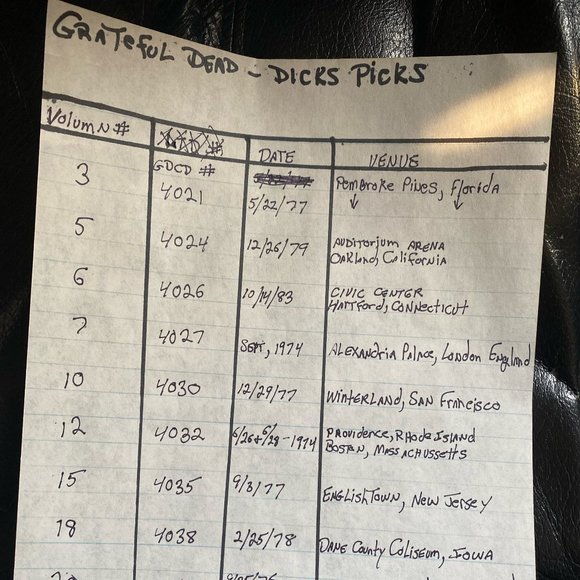 GRATEFUL DEAD - DICKS PICKS
VOLUMN # GDCD # DATE VENUE
3 4021 5/22/77 PEMBROKE PINES, FLORIDA
5 4024 12/26/79 AUDITORIUM ARENA
OAKLAND, CALIFORNIA
6 4026 10/14/83 CIVIC CENTER
HARTFORD, CONNECTICUT
7 4027 SEPT, 1974 ALEXANDRIA PALACE, LONDON ENGLAND
10 4030 12/29/77 WINTERLAND, SAN FRANCISCO
12 4032 6/26+6/28-1974 PROVIDENCE, RHODE ISLAND
BOSTON, MASSACHUSSETTS
15 4035 9/3/77 ENGLISHTOWN, NEW JERSEY
18 4038 2/25/78 DANE COUNTY COLISEUM, IOWA